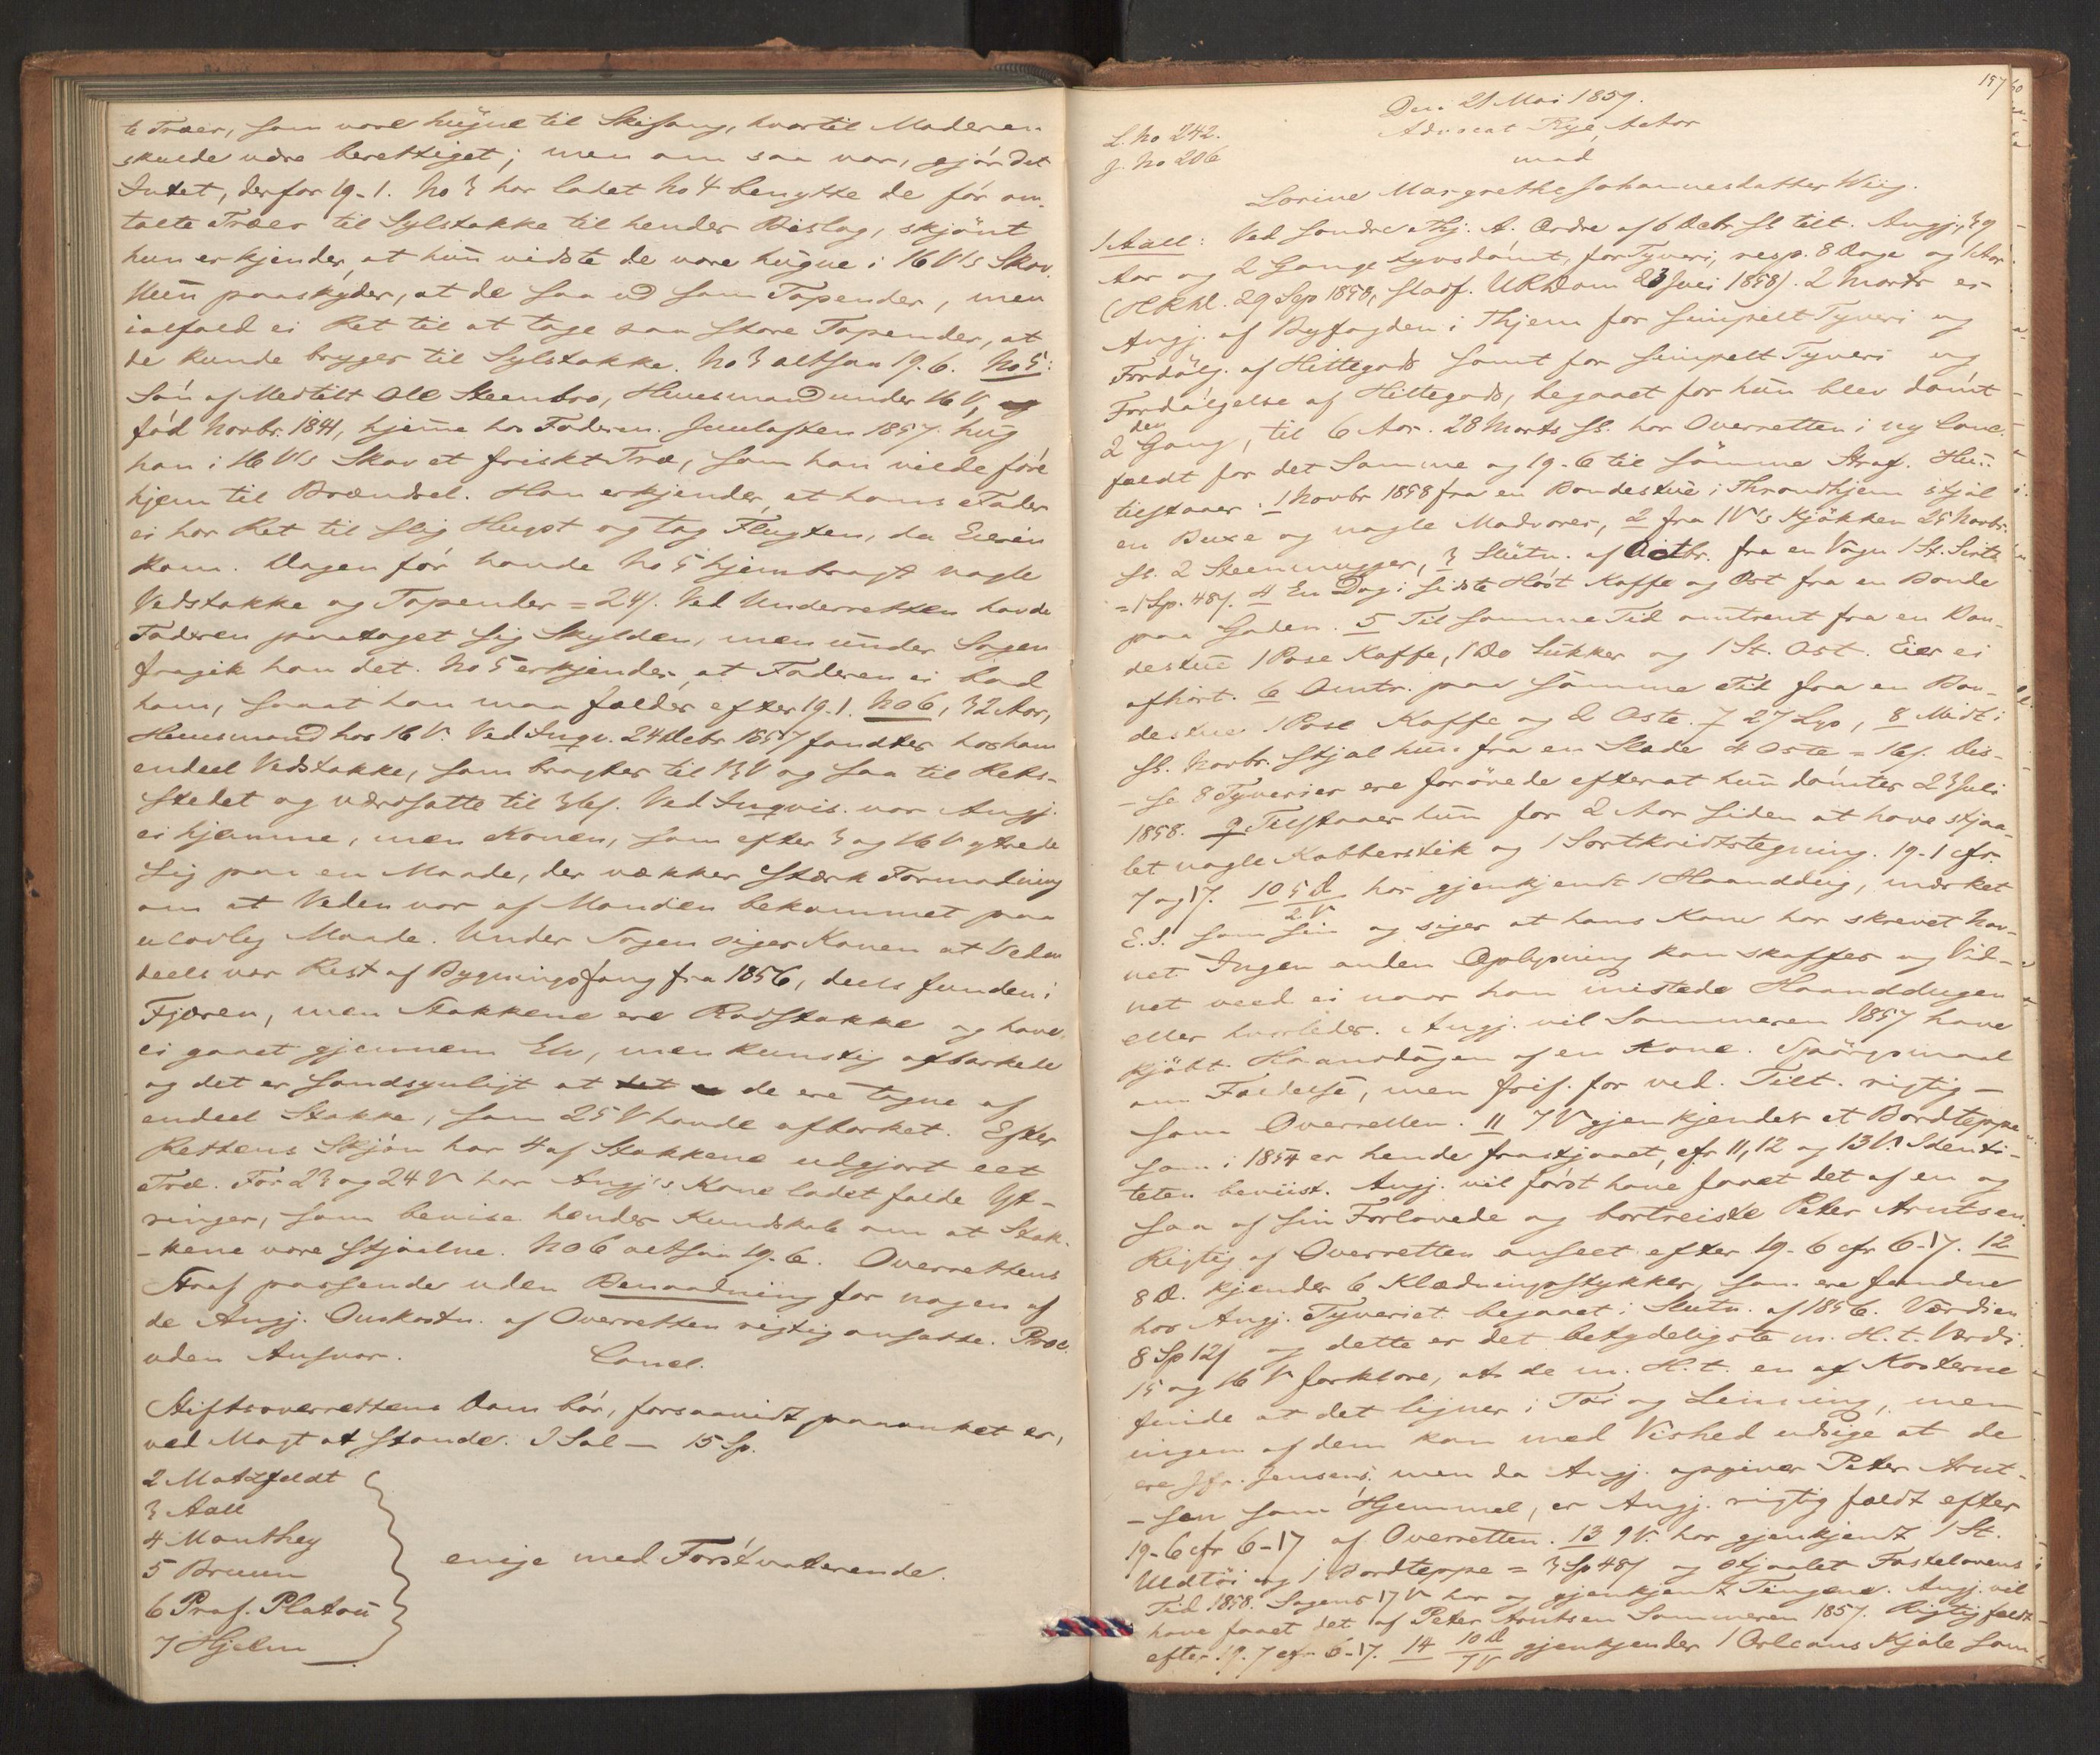 te Træer, som vare hugne til Skifang, hvortil Moderen
skulde være berettiget; men om saa var, gjör det
Intet, derfor 19-1. No 3 har ladet No 4 benytte de før om-
talte Træer til Sylstokke til hendes Bislag, skjönt
hun erkjender, at hun vidste de vare hugne i 16 V's Skov.
Hun paaskyder, at de saa ud som Topender, men
ialfald ei Ret til at tage saa store Topender, at
de kunde bryges til Sylstokke. No 3 altsaa 19.6. No 5:
Sön af Medtilt Ole Steenbro, Huusmand under 16 V,
fød Novbr. 1841, hjemme hos Faderen. Juulaften 1857 hug
han i 16 V's Skov et friskt Træ, som han vilde føre
hjem til Brændsel. Han erkjender, at hans Fader
ei har Ret til slig Hugst og tog Flugten, da Eieren
kom. Dagen før havde No 5 hjembragt nogle
Vedstokke og Topender = 24 s. Ved Underretten havde
Faderen paataget sig Skylden, men under Sagen
fragik han det. No 5 erkjender, at Faderen ei bad
ham, saaat han maa fældes efter 19-1. No 6, 32 Aar,
Huusmand hos 16 V. Ved Inqv. 24 Decbr 1857 fandtes hos ham
endeel Vedstokke, som bragtes til 13 V og saa til Rets-
stedet og værdsatte til 36 s. Ved Inqvis. var Angj.
ei hjemme, men Konen, som efter 3 og 16 V ytrede
sig paa en Maade, der vækker stærk Formodning
om at Veden var af Manden bekommet paa
ulovlig Maade. Under Sagen siger Konen at Veden
deels var Rest af Bygningsfang fra 1856, deels funden i
Fjæren, men Stokkene ere Rodstokke og have
ei gaaet gjennem Elv, men kunstig afbarkede
og det er sandsynligt at de ere tagne af
endeel Stokke, som 25 V havde afbarket. Efter
Rettens Skjøn har 4 af Stokkene udgjort eet
Træ. For 23 og 24 V har Angj's Kone ladet falde Yt-
ringer, som bevise hendes Kundskab om at Stok-
-kene vare stjaalne. No 6 altsaa 19.6. Overrettens
Straf passende uden Benaadning for nogen af
de Angj. Omkostn. af Overretten rigtig ansatte. Proc.
uden Ansvar. Concl.
Stiftsoverrettens Dom bør, forsaavidt paaanket er,
ved Magt at stande. I Sal — 15 Sp.
2 Motzfeldt
3 Aall
4 Manthey
5 Bruun
6 Prof. Platou
7 Hjelm
enige med Førstvoterende.
157
Den 21 Mai 1859.
L. No 242.
J. No 206
Advocat Rye, Actor
mod
Lorine Margrethe Johannesdatter Wiig.
1 Aall: Ved Søndre Thj. A. Ordre af 6 Decbr. sl. tilt. Angj., 39
Aar og 2 Gange tyvsdømt, for Tyveri, resp. 8 Dage og 1 Aar
(HRkl. 29 Sep 1858, stadf. URDom 23 Juli 1858). 2 Marts er
Angj. af Byfogden i Thjem for simpelt Tyveri og
Fordølg. af Hittegods samt for simpelt Tyveri og
Fordølgelse af Hittegods, begaaet før hun blev dømt
den
2 Gang, til 6 Aar. 28 Marts sl. har Overretten i ny Concl.
fældt for det Samme og 19-6 til samme Straf. Hun
tilstaaer: 1 Novbr 1858 fra en Bondestue i Throndhjem stjal
en Buxe og nogle Madvarer, 2 fra 1 V's Kjøkken 25 Novbr.
sl. 2 Steenmugger, 3 Slutn. af Octbr. fra en Vogn 1 St.
= 1 Sp. 48 s. 4 En Dag i sidste Høst Kaffe og Ost fra en Bonde
paa Gaden. 5 Til samme Tid omtrent fra en Bon-
destue 1 Pose Kaffe, 1 Do Sukker og 1 St. Ost. Eier ei
afhørt. 6 Omtr. paa samme Tid fra en Bon-
destue 1 Pose Kaffe og 2 Oste. 7 , 8 Midt i
sl. Novbr. stjal hun fra en Slæde 4 Oste = 16 s. Dis-
-se 8 Tyverier ere forøvede efterat hun dømtes 23 Juli
1858. 9 Tilstaaer hun for 2 Aar siden at have stjaa-
let nogle Kobberstik og 1 Sortkridtstegning. 19-1 cfr.
7 og 17. 10 5 D har gjenkjendt 1 Haanddug, mærket
2 V
E.S. som sin og siger at hans Kone har skrevet Nav-
net. Ingen anden Oplysning kan skaffes og Vid-
net veed ei naar han mistede Haanddugen
eller hvorledes. Angj. vil Sommeren 1857 have
kjøbt Haanddugen af en Kone. Spørgsmaal
om Fældelse, men frif. for ved. Tilt. rigtig
som Overretten. 11 7 V gjenkjendes et Bordteppe
som i 1854 er hende frastjaalet, cfr 11, 12 og 13 V. Identi-
teten beviist. Angj. vil først have faaet det af en og
saa af sin Forlovede og bortreiste Peter Arntsen.
Rigtig af Overretten anseet efter 19-6 cfr 6-17. 12
8 D. kjender 6 Klædningsstykker, som ere fundne
hos Angj. Tyveriet begaaet i Slutn. af 1856. Værdien
8 Sp 12 s og dette er det betydeligste m. H. t. Værdi.
15 og 16 V forklare, at de m. H. t. en af Kosterne
finde at det ligner i Tøi og Linning, men
ingen af dem kan med Vished udsige at de
ere Jfr. Jensens, men da Angj. opgiver Peter Arnt-
-sen som Hjemmel, er Angj. rigtig fældt efter
19-6 cfr 6-17 af Overretten. 13 9 V. har gjenkjendt 1 St.
Uldtøi og 1 Bordteppe = 3 Sp 48 s og stjaalet Fastelavens
Tid 1858. Sagens 17 V har og gjenkjendt Tingene. Angj. vil
have faaet det af Peter Arntsen Sommeren 1857. Rigtig fældt
efter 19.7 cfr 6-17. 14 10 D gjenkjender 1 Orleans Kjole som
7 V